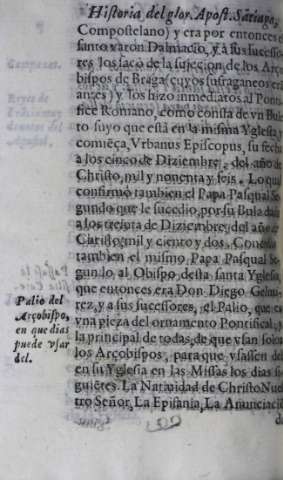 Historia del glor. Apost. Sātiago,
Compostelano) y era por entonces el
santo varon Dalmacio, y a sus successo
res los saco de la sujecion de los Arço
bispos de Braga (cuyos sufraganeos erā
antes) y los hizo inmediatos al Ponti
fice Romano, como consta de vn Bule
to suyo que està en la misma Yglesia, y
comiēça, Vrbanus Episcopus, su fecha
a los cinco de Diziembre, del año de
Christo, mil y nouenta y seis. Lo qual
confirmò tambien el Papa Pasqual Se
gundo que le sucedio, por su Bula dada
a los treinta de Diziembre, del año de
Christo, mil y ciento y dos.
tambien el mismo Papa Pasqual Se
gundo, al Obispo desta santa Yglesia,
que entonces era Don Diego Gelmi
rez, y a sus sucessores, el Palio, que es
vna pieza del ornamento Pontifical, y
la principal de todas, de que vsan solos
los Arçobispos, para que vsassen del
en su Yglesia en las Missas los dias si
guiētes. La Natiuidad de Christo Nues
tro Señor, La Epifania, La Anunciaciō
de
Palio del
Arçobispo,
en que dias
puede vsar
del.